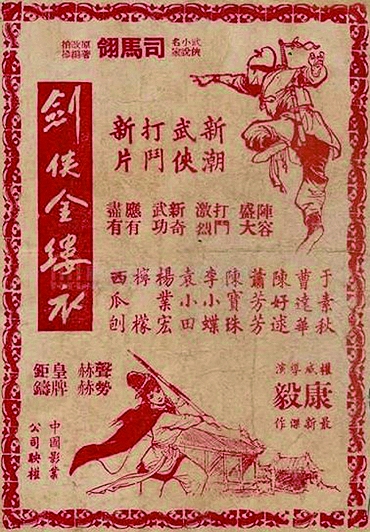 武俠小說名家
司馬翎
原著改編拍攝
新潮
武俠
打鬥
新片
陣容盛大
打鬥激烈
新奇武功
應有盡有
于素秋
曹達華
陳好逑
蕭芳芳
陳寶珠
李小蝶
袁小田
楊業宏
檸檬
西瓜刨
劍俠金縷衣
權威導演
康毅
最新傑作
聲勢赫赫
皇牌鉅鑄
中國影業
公司映權